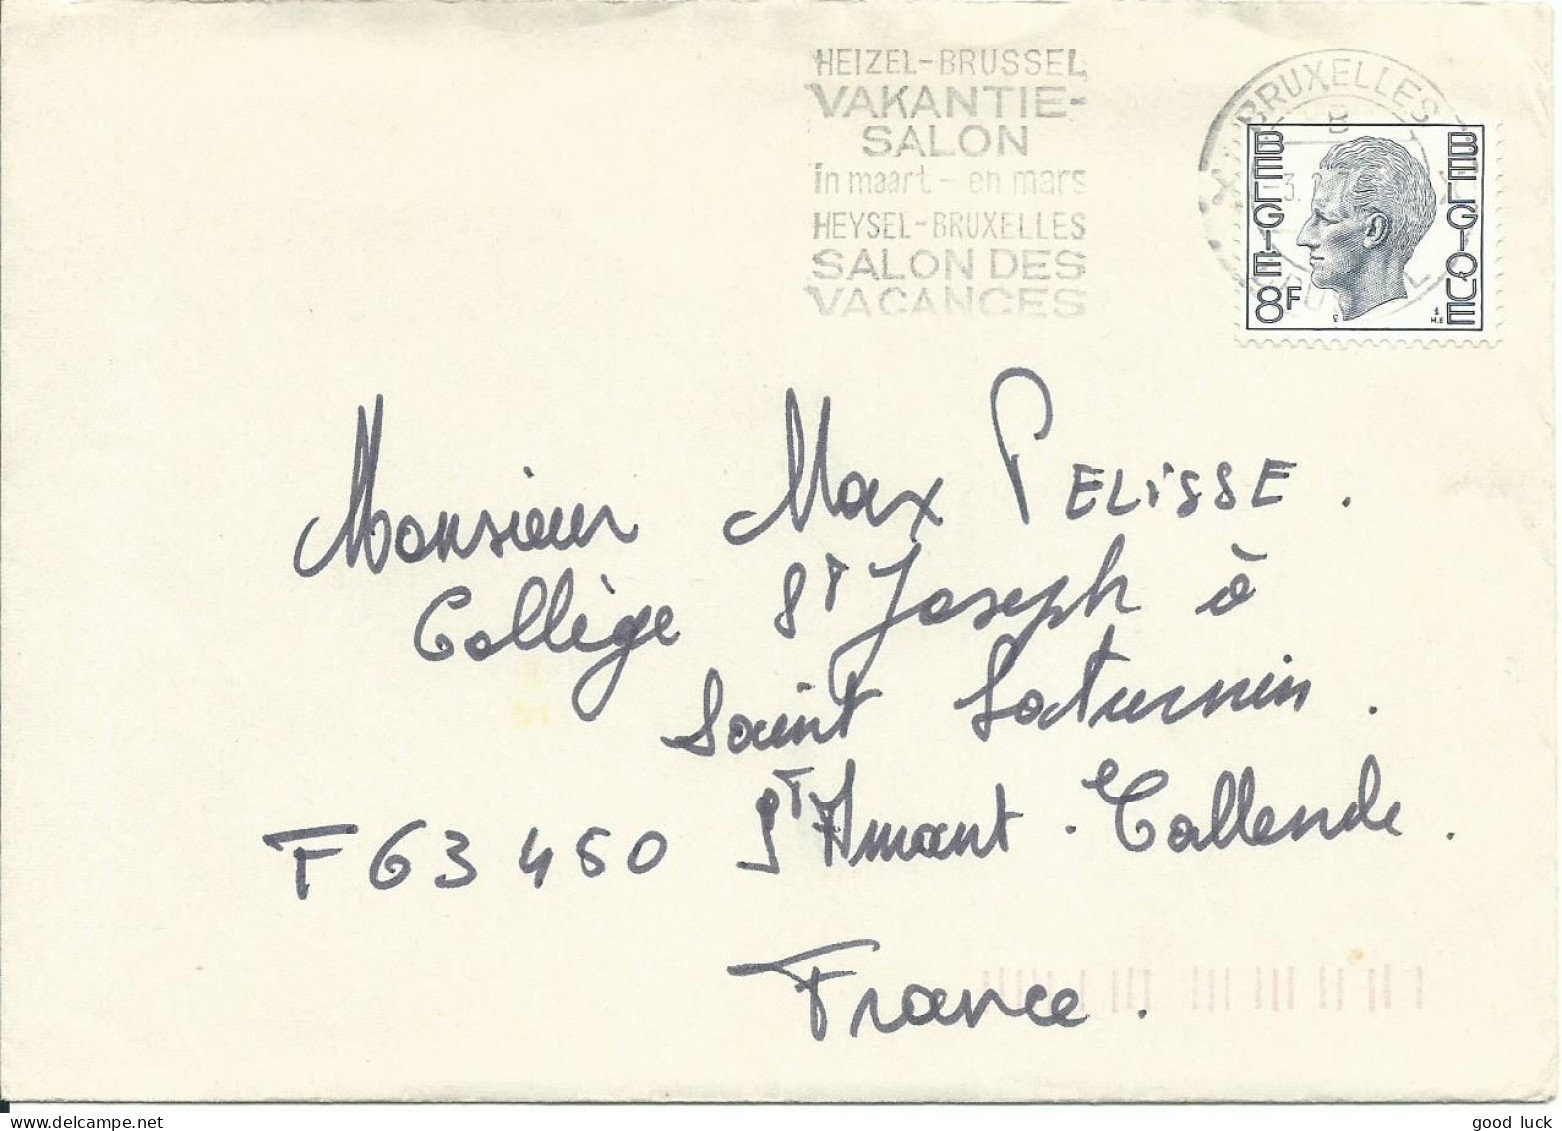 HEIZEL-BRUSSEL
VAKANTIE-
SALON
in maart - en mars
HEYSEL-BRUXELLES
SALON DES
VACANCES
BRUXELLES
B
3.
BELGIE
BELGIQUE
8F
Monsieur Max PELiSSE.
Collège ST Joseph à
Saint Saturnin.
F 63 450 ST Amant. Tallende.
France.
good luck